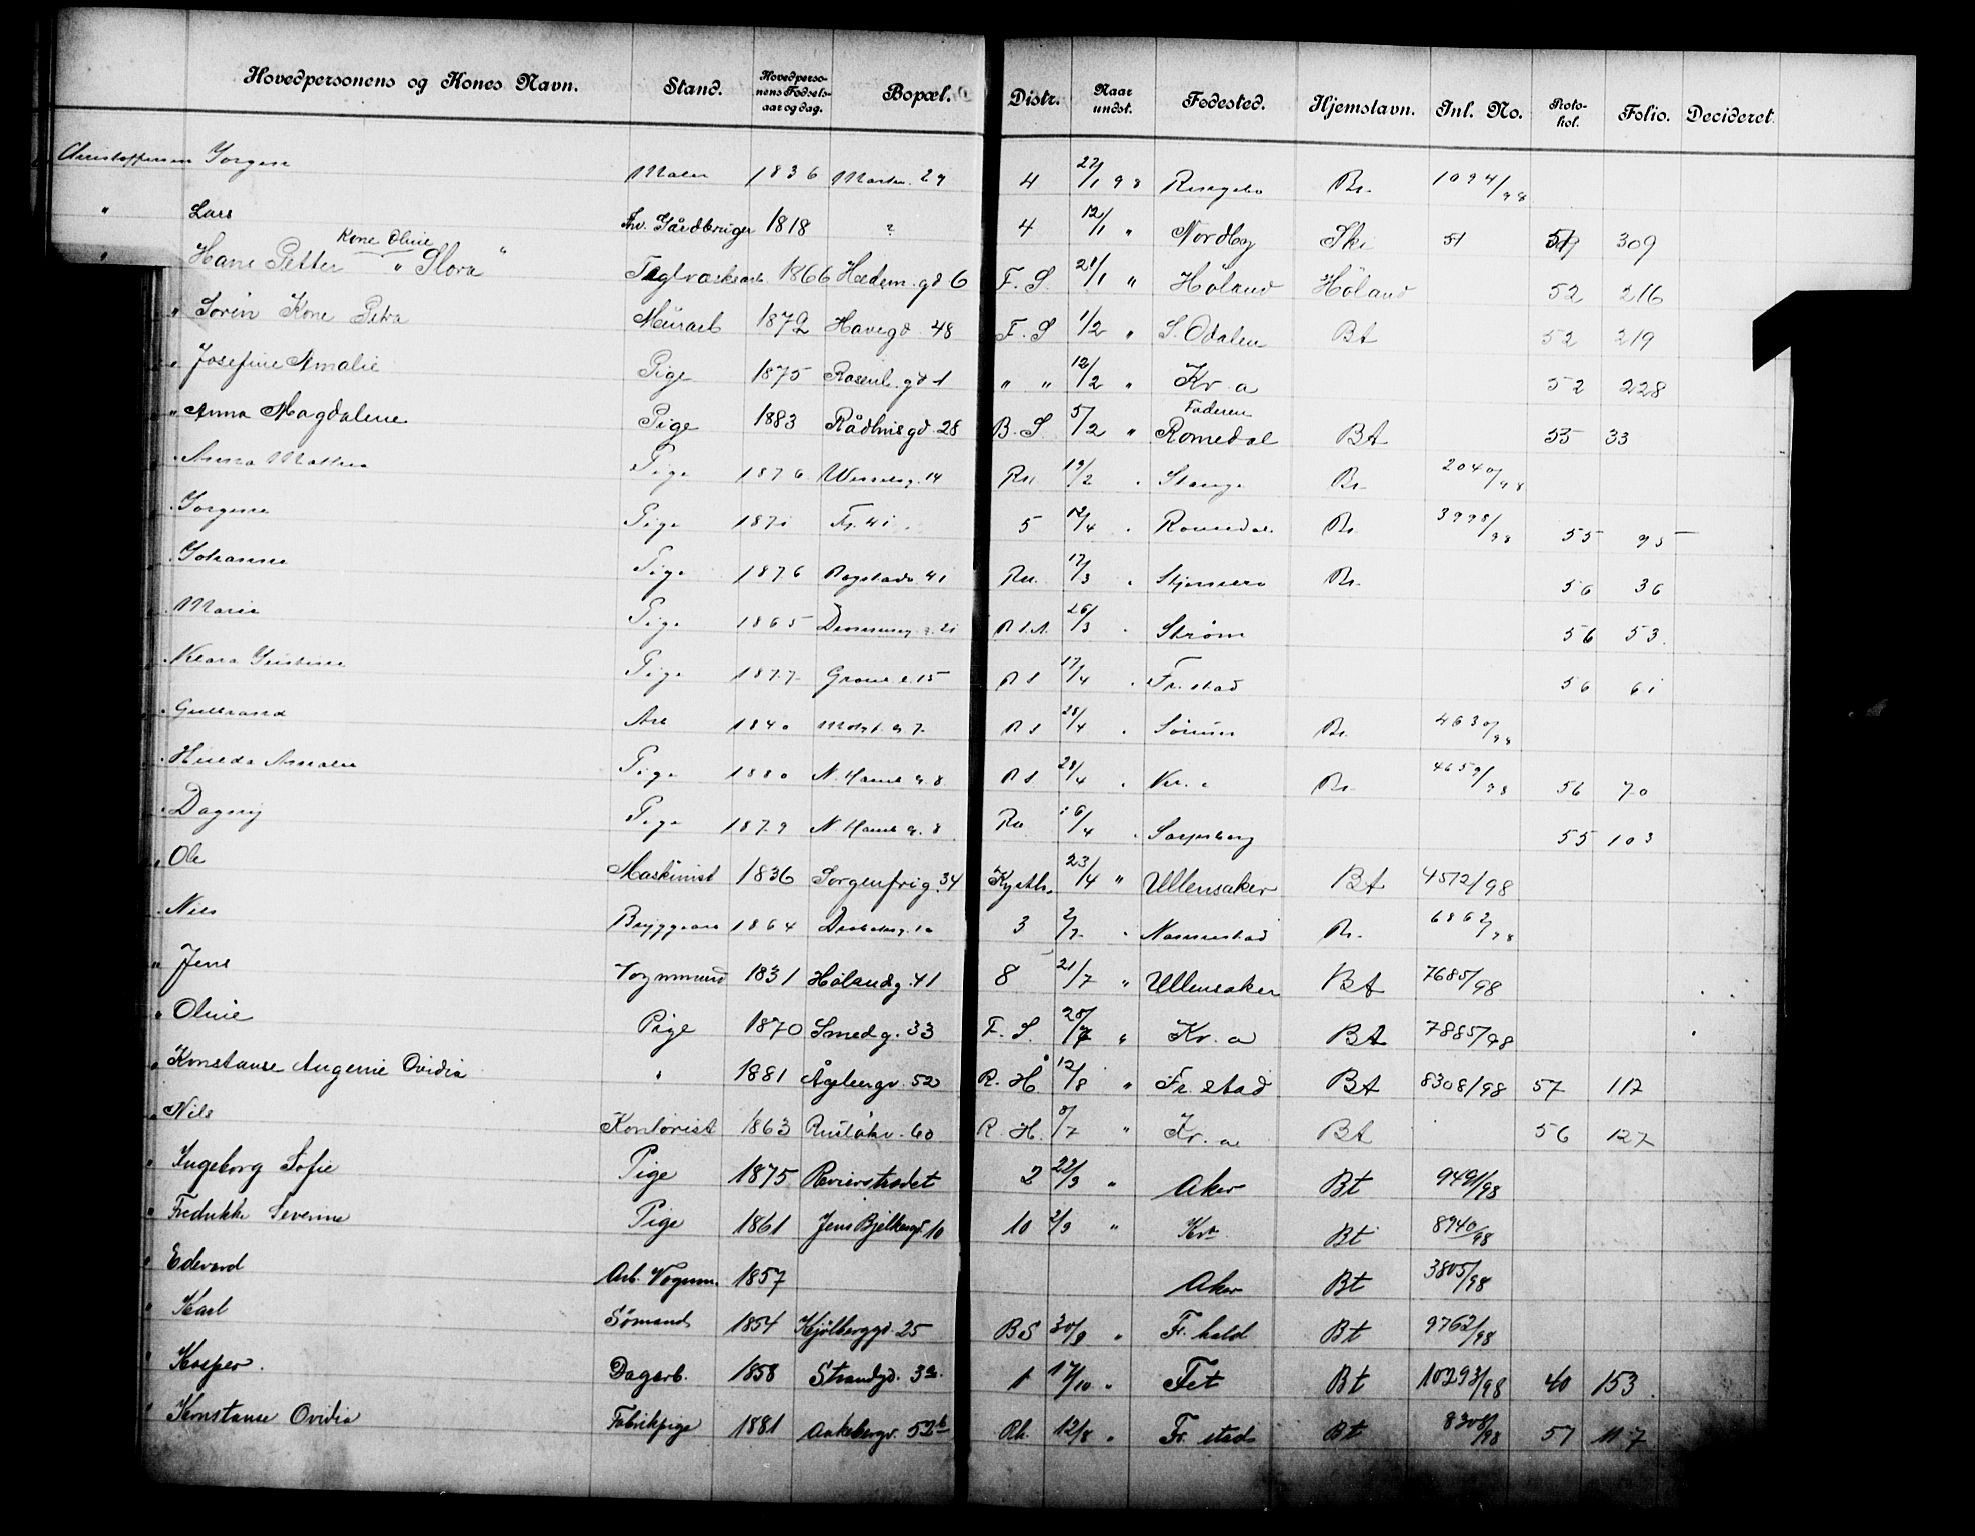 Hovedpersonens og Kones Navn. Stand. Hovedpersonens Fødselsaar og dag. Bopæl. Distr. Naar undst. Fødested. Hjemstavn. Jnl. No. Protokol. Folio. Decideret.
Christoffersen Jørgen Maler 1836 29 4 22/1 98 Ringebo Bt. 1094/98
" Lars Fhv. Gårdbruger 1818 ? 4 12/1 " Nordby Ski 51 309
Kone Oline "
" Hans Petter " Flora Teglværksarb 1866 Hedem.gd 6 F. S. 21/1 " Høland Høland 52 216
" Sørin Kone Petra Murarb 1872 Havegd. 48 F. S 1/2 " S. Odalen Bt 52 219
" Josefine Amalie Pige 1875 Rosenb.gd 1 " " 12/2 " Kr.a 52 228
" Anna Magdalene Pige 1883 Rådhusgd. 28 B. S. 5/2 " Faderen Romedal Bt 55 33
" Anna Mathea Pige 1876 Wesselsg. 14 Ru 19/2 " Stange Bt. 2040/98
" Jørgine Pige 1871 5 12/4 " Romedal Bt. 3998/98 55 95
" Johanne Pige 1876 41 Ru. 17/3 " Bt. 56 36
" Marie Pige 1865 21 26/3 " Strøm 56 53.
" Klara Pige 1877 15 17/4 " Fr.stad 56 61
" Gulbrand Arb 1840 7 28/4 " Sørum Bt. 4630/98
" Hilda Amalie Pige 1880 N. 8 28/4 " Kr.a Bt. 4659/98 56 70
" Dagny Pige 1879 N. 8 Ru 16/4 " Sarpsborg 55 103
" Ole Maskinist 1836 Sorgenfrig. 34 23/4 " Ullensaker Bt 4512/98
" Nils Bryggearb 1864 3 2/7 " Nannestad Bt. 6862/98
" Jens Vognmand 1831 Hølandg. 41 8 21/7 " Ullensaker Bt 7685/98
" Oline Pige 1870 Smedg. 33 F. S. 20/7 " Kr.a Bt 7885/98
" Konstanse Augenie Ovidia " 1881 Ågebergv. 52 R. H. 12/8 " Fr.stad Bt 8308/98 57 117
" Nils Kontorist 1863 60 R. H. 8/7 " Kr.a Bt 56 127
" Ingeborg Sofie Pige 1875 Revierstredet 2 22/9 " Aker Bt 9491/98
" Fredrikke Severine Pige 1861 Jens Bjelkesgd 10 10 2/9 " Kr.a Bt 8940/98
" Edvard Arb. Vognm. 1857 Aker Bt 3805/98
" Karl Sømand 1854 Kjølberggd. 25 BS 30/9 " Fr.hald Bt 9762/98
" Kasper. Dagarb. 1858 Strandgd. 3a. 1 17/10 " Fet Bt 10293/98 40 153.
" Konstanse Ovidia Fabrikpige 1881 Aakebergv. 52b Rh. 12/8 " Fr.stad Bt 8308/98 57 117